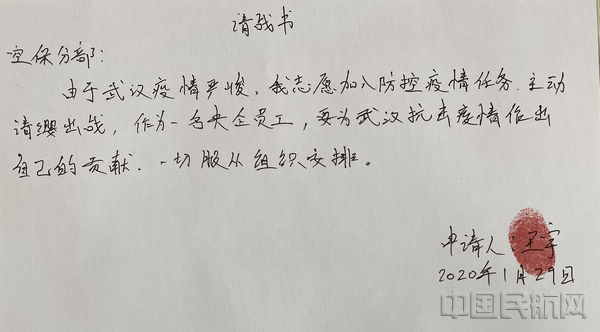 请战书
空保分部：
由于武汉疫情严峻，我志愿加入防控疫情任务．主动
请缨出战，作为一名央企员工，要为武汉抗击疫情作出
自己的贡献．一切服从组织安排。
申请人：王宇
2020年1月29日
中国民航网